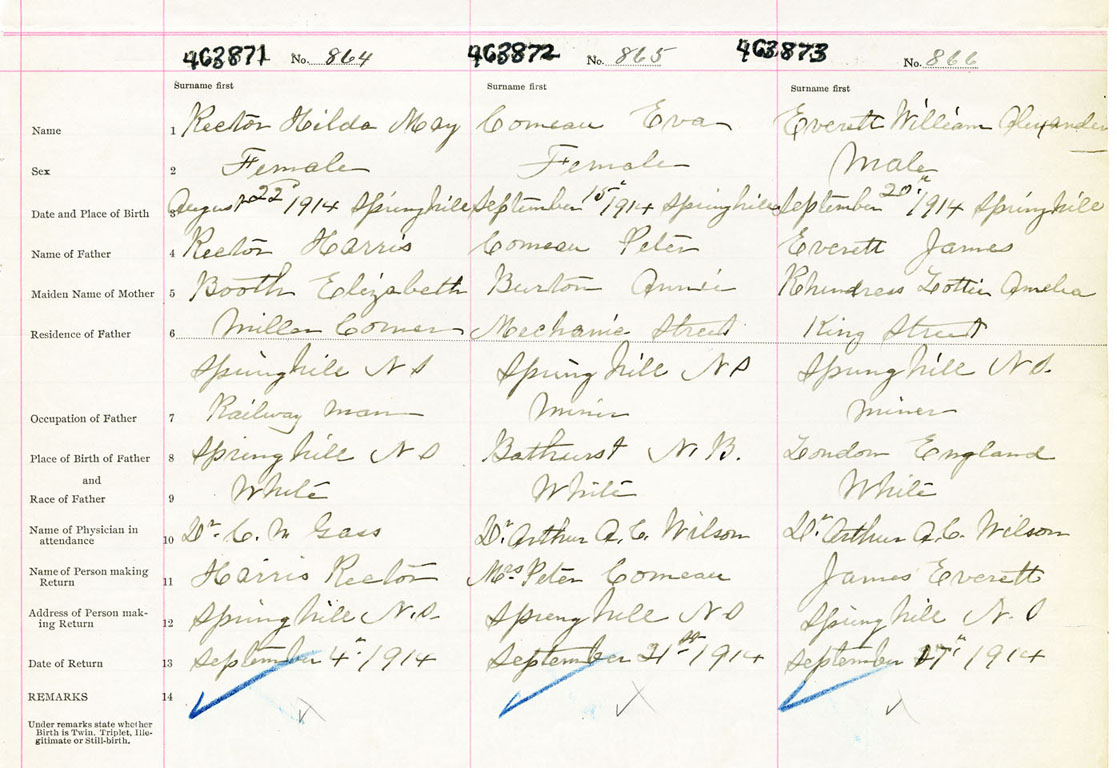 463871 No. 864 463872 No. 865 463873 No. 866
Surname first Surname first Surname first
Name 1 Rector Hilda May Comeau Eva Everett William Alexander
Sex 2 Female Female Male
Date and Place of Birth 3 August 22d 1914 Springhill September 15" 1914 Springhill September 20" 1914 Springhill
Name of Father 4 Rector Harris Comeau Peter Everett James
Maiden Name of Mother 5 Booth Elizabeth Burton Annie Lottie Amelia
Residence of Father 6 Miller Corner Mechanic Street King Street
Springhill N S Spring hill N S Springhill N S.
Occupation of Father 7 Railway man Miner miner
Place of Birth of Father 8 Springhill N S Bathurst N. B. London England
and
Race of Father 9 White White White
Name of Physician in
attendance 10 Dr. C. N Gass Dr. Arthur A. C. Wilson Dr. Arthur A. C. Wilson
Name of Person making
Return 11 Harris Rector Mrs Peter Comeau James Everett
Address of Person mak-
ing Return 12 Springhill N.S. Springhill N S Springhill N. S
Date of Return 13 September 4" 1914 September 21st 1914 September 1914
REMARKS 14
Under remarks state whether
Birth is Twin, Triplet, Ille-
gitimate or Still-birth.